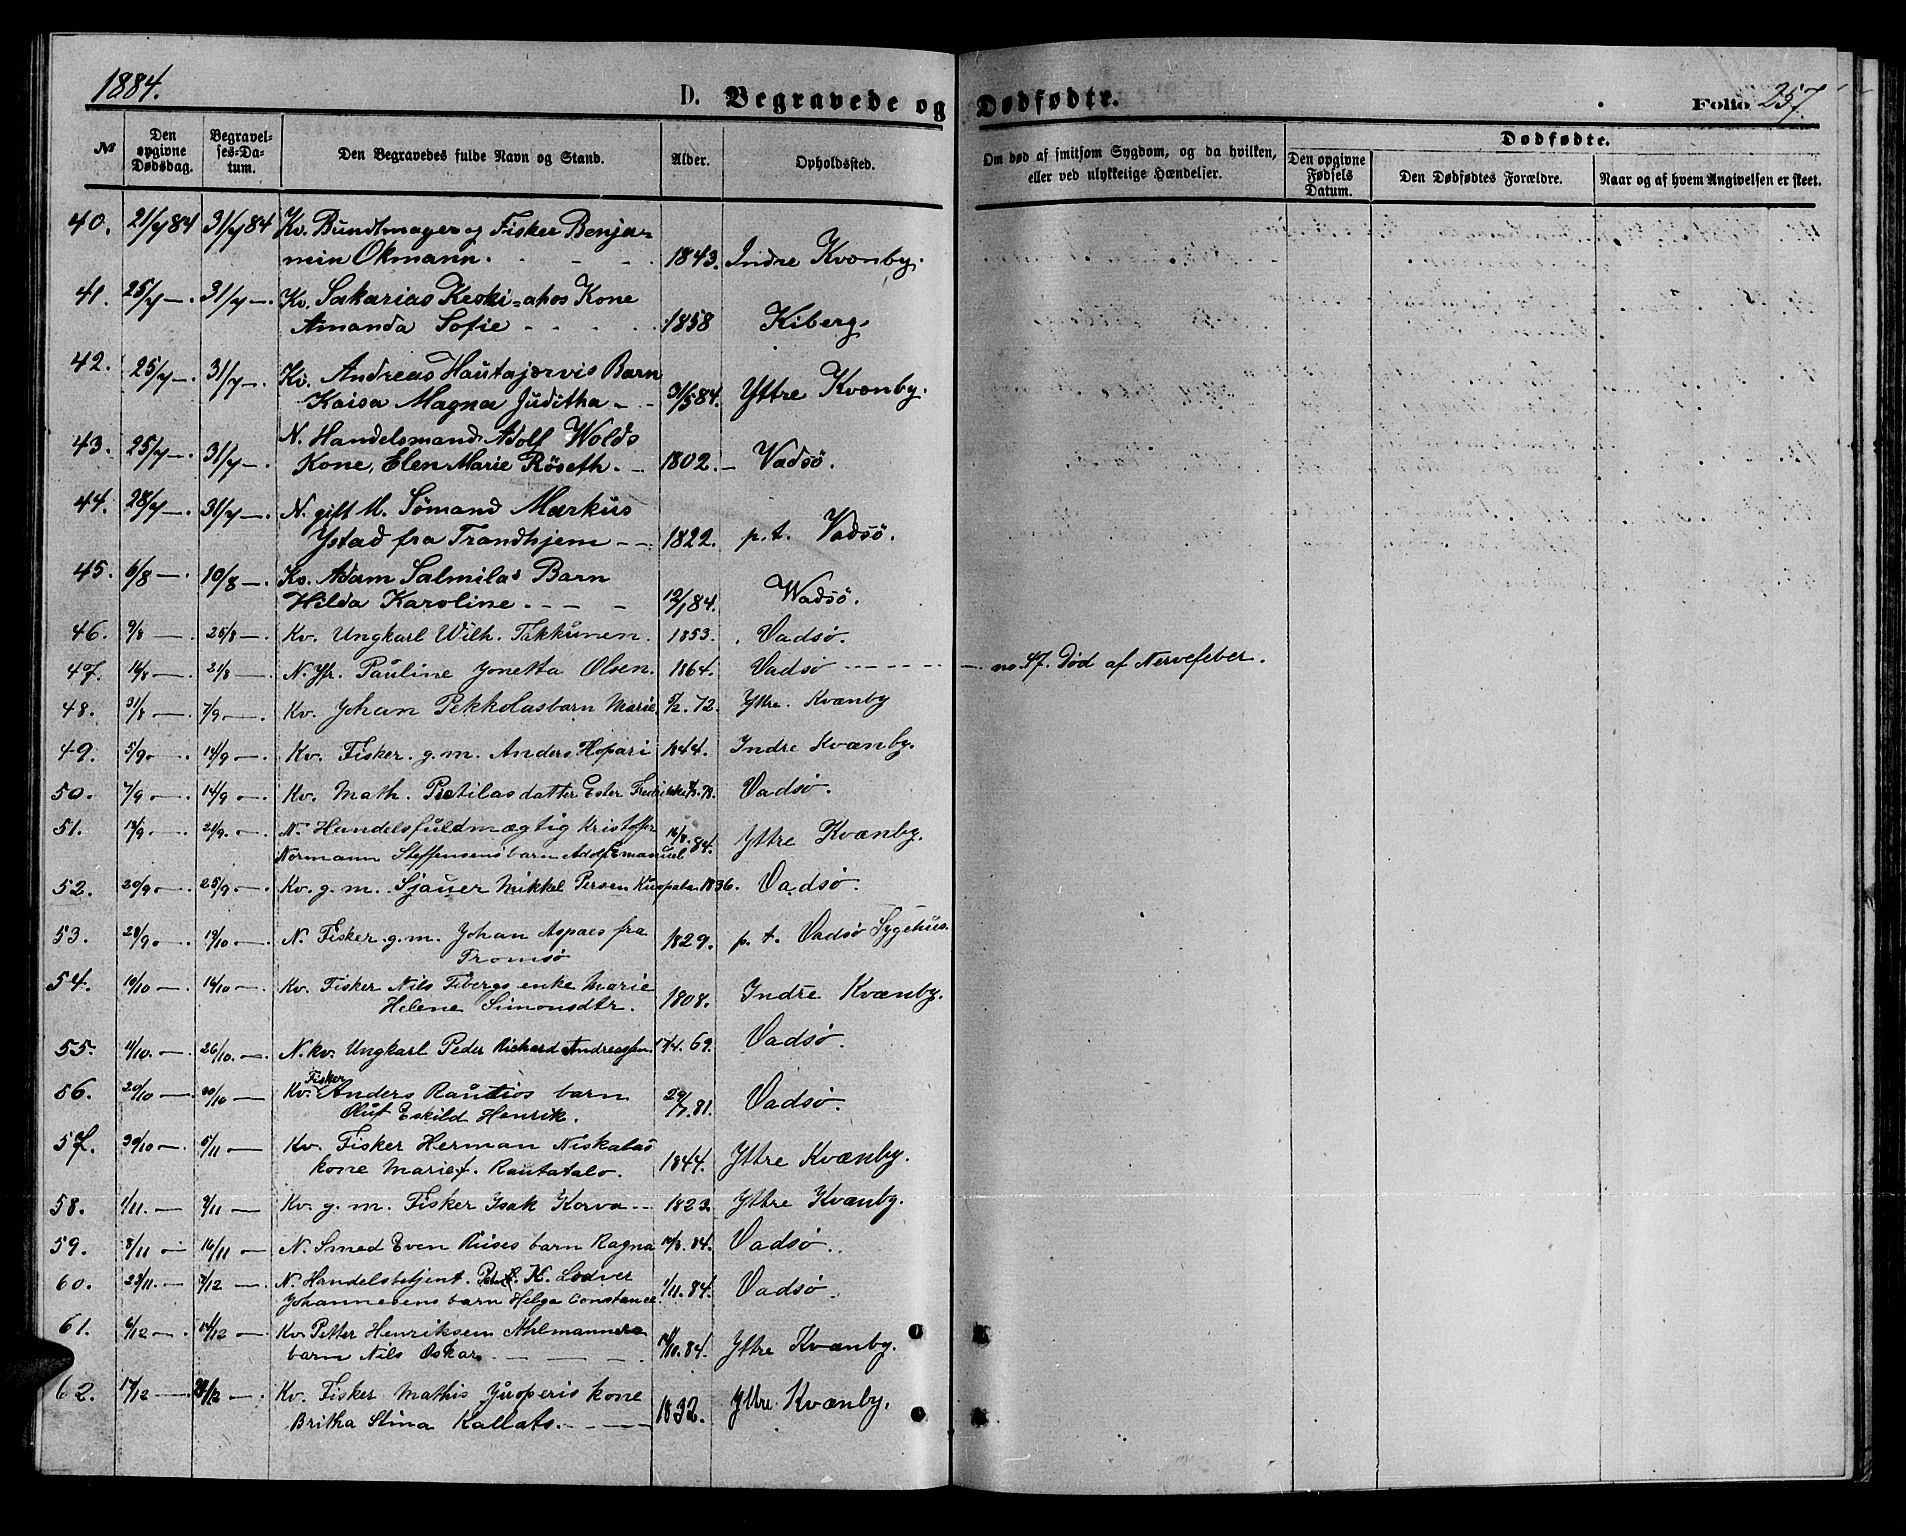 1884.
D. Begravede og Dødfødte.
Folio 257.
№ Den opgivne Dødsdag. Begravelses-Datum. Den Begravedes fulde Navn og Stand. Alder. Opholdssted. Om død af smitsom Sygdom, og da hvilken, eller ved ulykkelige Hændelser. Dødfødte. Den opgivne Fødsels Datum. Den Dødfødtes Forældre. Naar og af hvem Angivelsen er skeet.
40. 21/7 84 31/7 84 Kv. Bundtmager og Fisker Benja-
min Okmann. 1843. Indre Kvænby.
41. 25/7 — 31/7 —. Kv. Sakarias Keski-ahos Kone
Amanda Sofie 1858 Kiberg
42. 25/7 —. 31/7 —. Kv. Andreas Hautajærvis Barn
Kaisa Magna Juditha 31/5 84. Yttre Kvænby.
43. 25/7 —. 31/7 —. N. Handelsmand Adolf Wolds
Kone, Elen Marie Röseth. 1802. Vadsö.
44. 28/7 —. 31/7 —. N. gift M. Sömand Markus
Ystad fra Trondhjem 1822. p.t. Vadsö.
45. 6/8 —. 10/8 —. Kv. Adam Salmilas Barn
Hilda Karoline. 12/1 84. Wadsö.
46. 9/8 —. 25/8 —. Kv. Ungkarl Wilh. Takkunen. 1853. Vadsö.
47. 14/8 —. 21/8 —. N. Yfr. Pauline Jonetta Olsen. 1864. Vadsö — no. 47. Død af Nervefeber.
48. 31/8 —. 7/9 —. Kv. Johan Pekkolas barn Marie 5/2. 72. Yttre. Kvænby
49. 5/9 —. 14/9 —. Kv. Fisker. g. m. Anders Hopari 1844. Indre Kvænby.
50. 7/9 —. 14/9 —. Kv. Math. Pietilas datter Ester Fredrikke Vadsö.
51. 21/9. —. N. Handelsfuldmægtig Kristoffer
Normann Steffensens barn Adolf Emanuel 16/8. 84. Yttre Kvænby.
52. 20/9 —. 25/9 —. Kv. g. m. Sjauer Mikkel Persen 1836. Vadsö.
53. 28/9 —. 19/10 —. N. Fisker. g. m. Johan Aspaes fra
Tromsö 1829. p. t. Vadsö Sygehus.
54. 10/10 —. 16/10 —. Kv. Fisker Nils Fibergs enke Marie
Helene Simonsdtr. 1808. Indre Kvænby.
55. 11/10. —. 26/10. —. N. kv. Ungkarl Peder Richard Andreassen. 69. Vadsö.
56. 20/10 —. 30/10 —. Kv. Fisker Anders Rautios barn
Oluf Eskild Henrik. 29/7. 81. Vadsö.
57. 30/10 —. 5/11 —. Kv. Fisker Herman Niskalas
kone Marie f. Rautatalo. 1844. Yttre Kvænby.
58. 1/11. — 9/11 — Kv. g. m. Fisker Isak Korva 1823. Yttre Kvænby.
59. 8/11 — 16/11 — N. Smed Even Riises barn Ragna 10/8. 84. Vadsö.
60. 23/11. — 7/12 —. N. Handelsbetjent. K. Lodver
Johannesens barn Helga Constance. 1/11. 84. Vadsö.
61. 6/12 —. 14/12 —. Kv. Petter Henriksen Ahlmanns
barn Nils Oskar 14/10. 84. Yttre Kvænby.
62. 17/12 —. Kv. Fisker Mathis Juoperis kone
Britha Stina Kallats. 1832. Yttre. Kvænby.